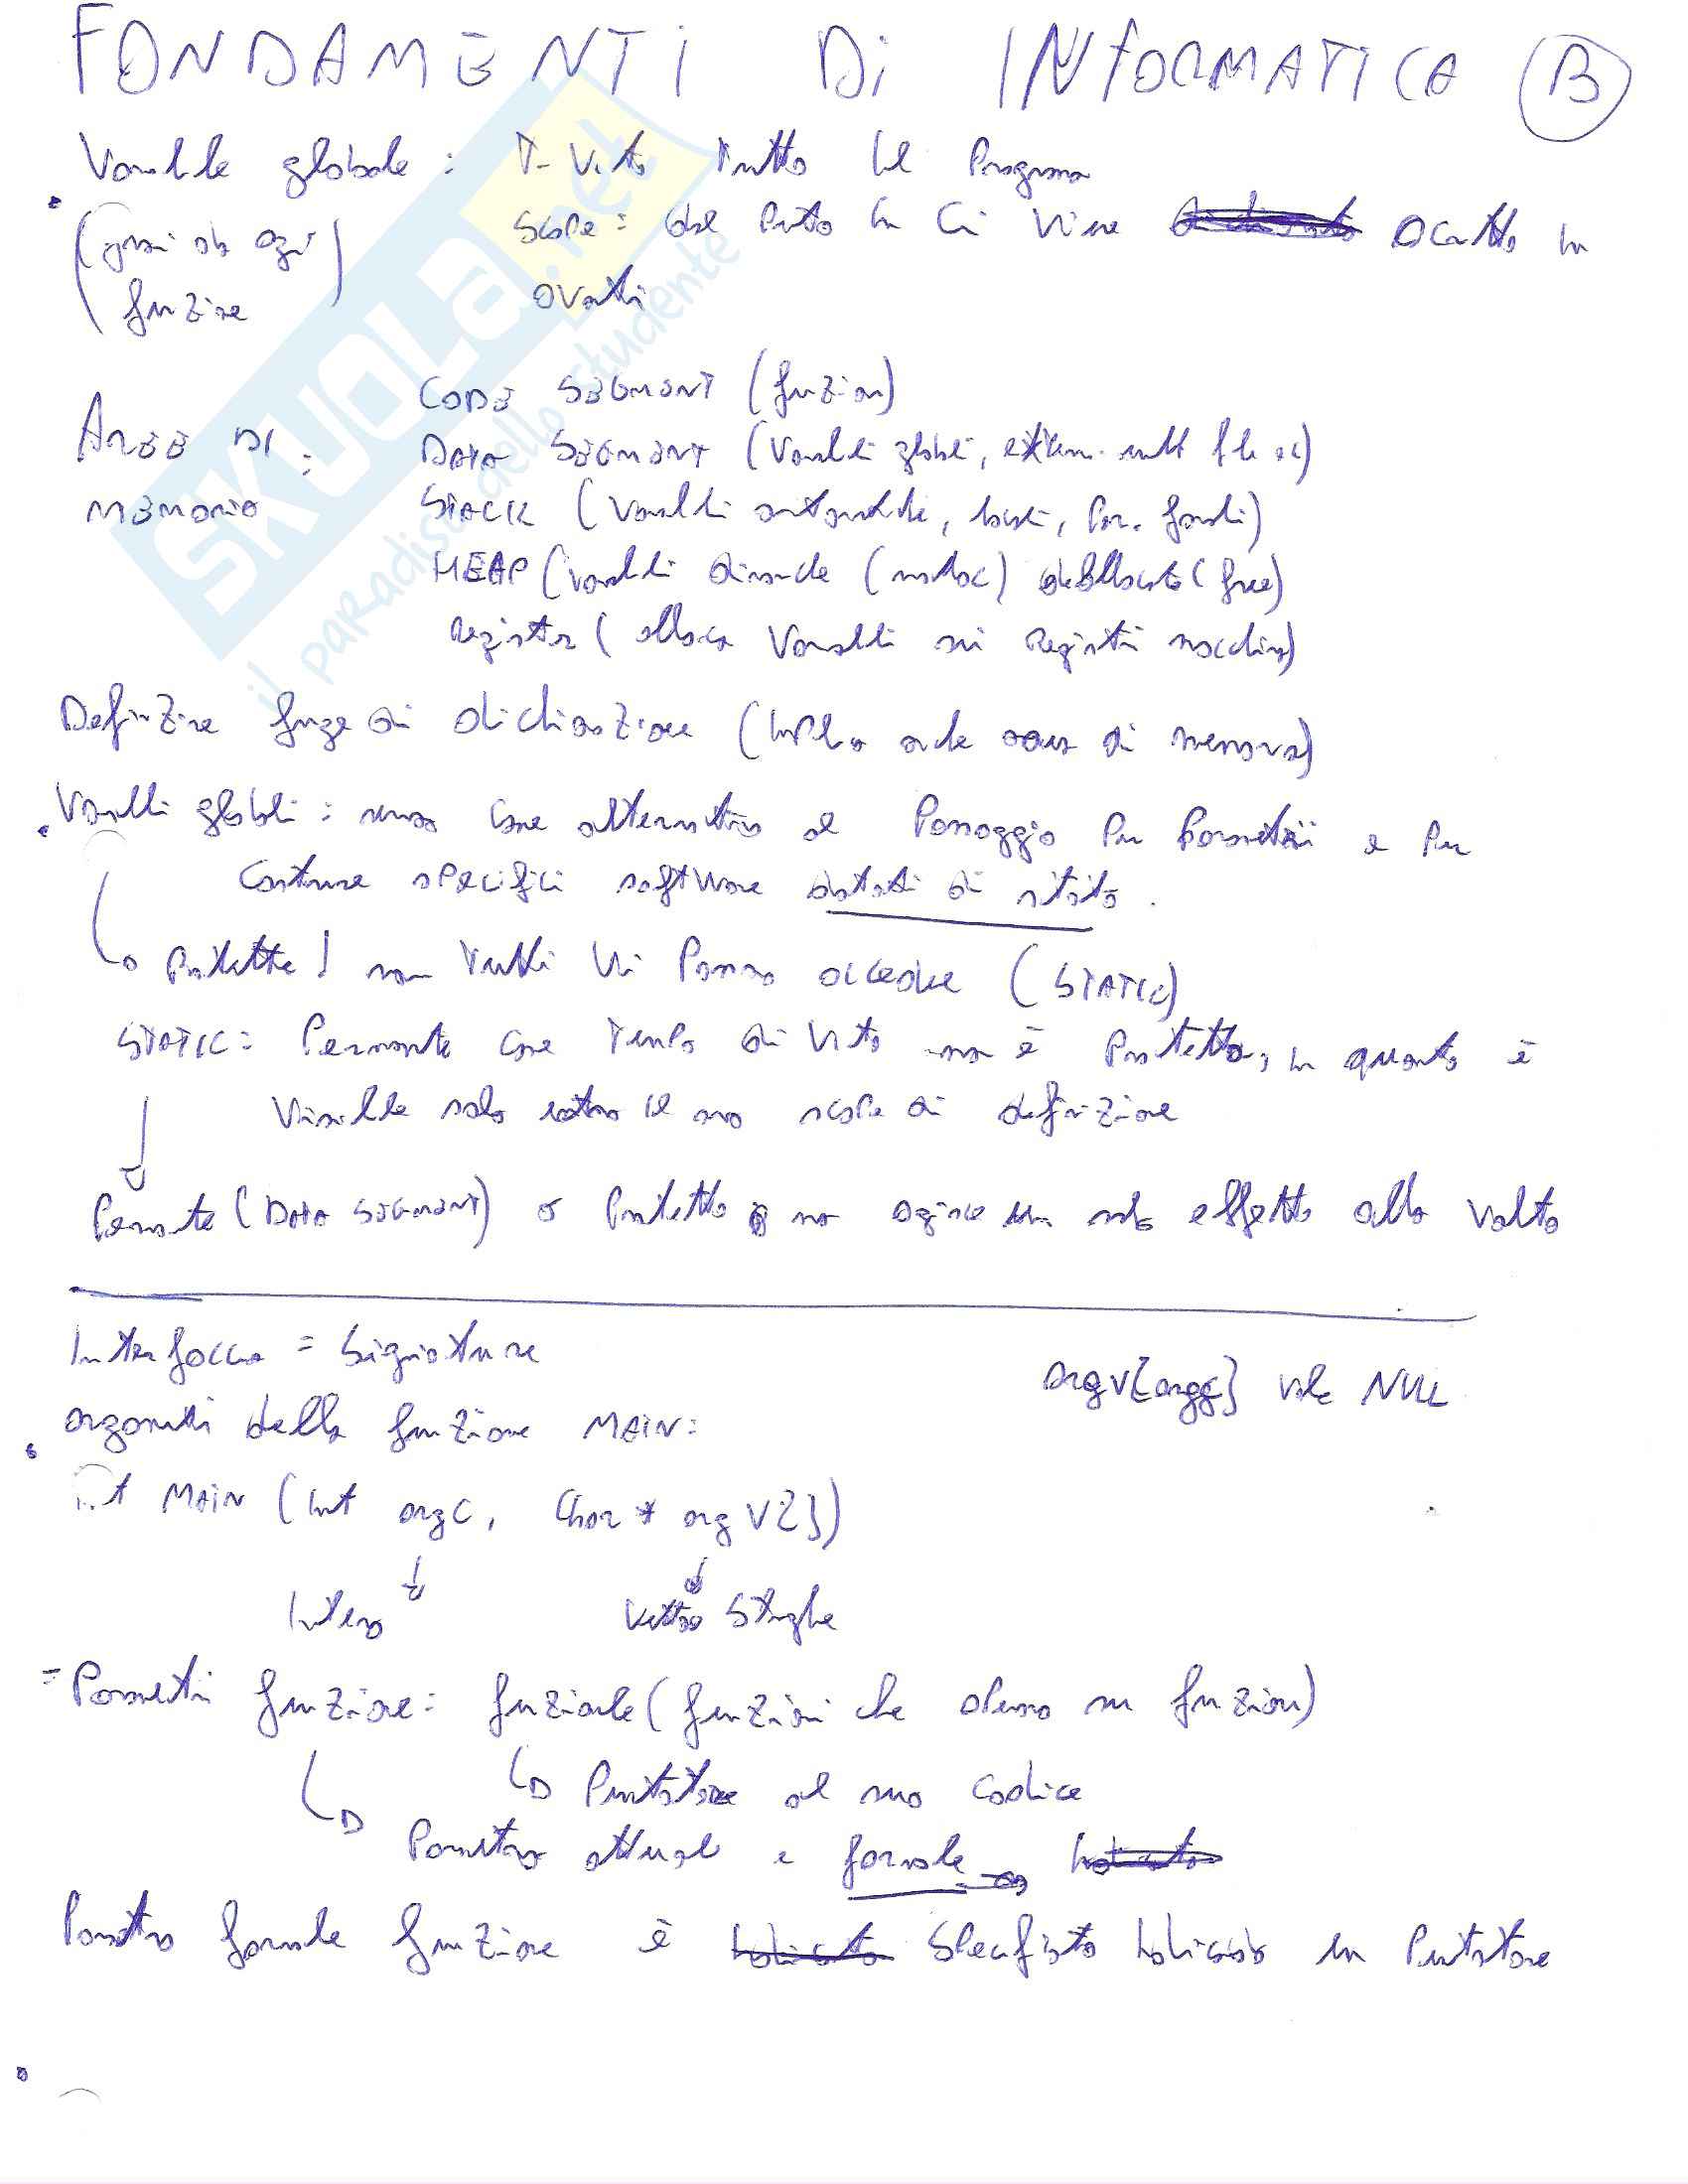 FONDAMENTI Di INFORMATICA B
Variabile globale : T-Vita tutto il Programma
(fuori da ogni scope : dal punto in cui viene scritto in
funzione) avanti
CODE SEGMENT (funzioni)
AREE DI : DATA SEGMENT (Variabili globali, extern
MEMORIA STACK (Variabili automatiche, locali, par. formali)
HEAP (variabili dinamiche (malloc) deallocate (free)
register ( alloca Variabili sui registri macchina)
Definizione funge di dichiarazione (implica anche di memoria)
Variabili globali : come alternativa al Passaggio Per Parametri e Per
Costruire specifici software dotati di stato.
Protette! non tutti vi Possono accedere (STATIC)
STATIC : Permanente come Tempo di Vita ma è Protetta, in quanto è
Visibile solo entro il suo scope di definizione
Permanente (DATA SEGMENT) o Protetta effetto alla volta
Interfaccia = Signature
argv[argc] vale NULL
argomenti della funzione MAIN :
int MAIN (int argc, char * argv[])
Intero Vettore Stringhe
Parametri funzione : funzionale (funzioni che operano su funzioni)
Puntatore al suo codice
Parametro attuale e formale
Parametro formale funzione è specificato un Puntatore
SKUOLA.net
il paradiso dello studente